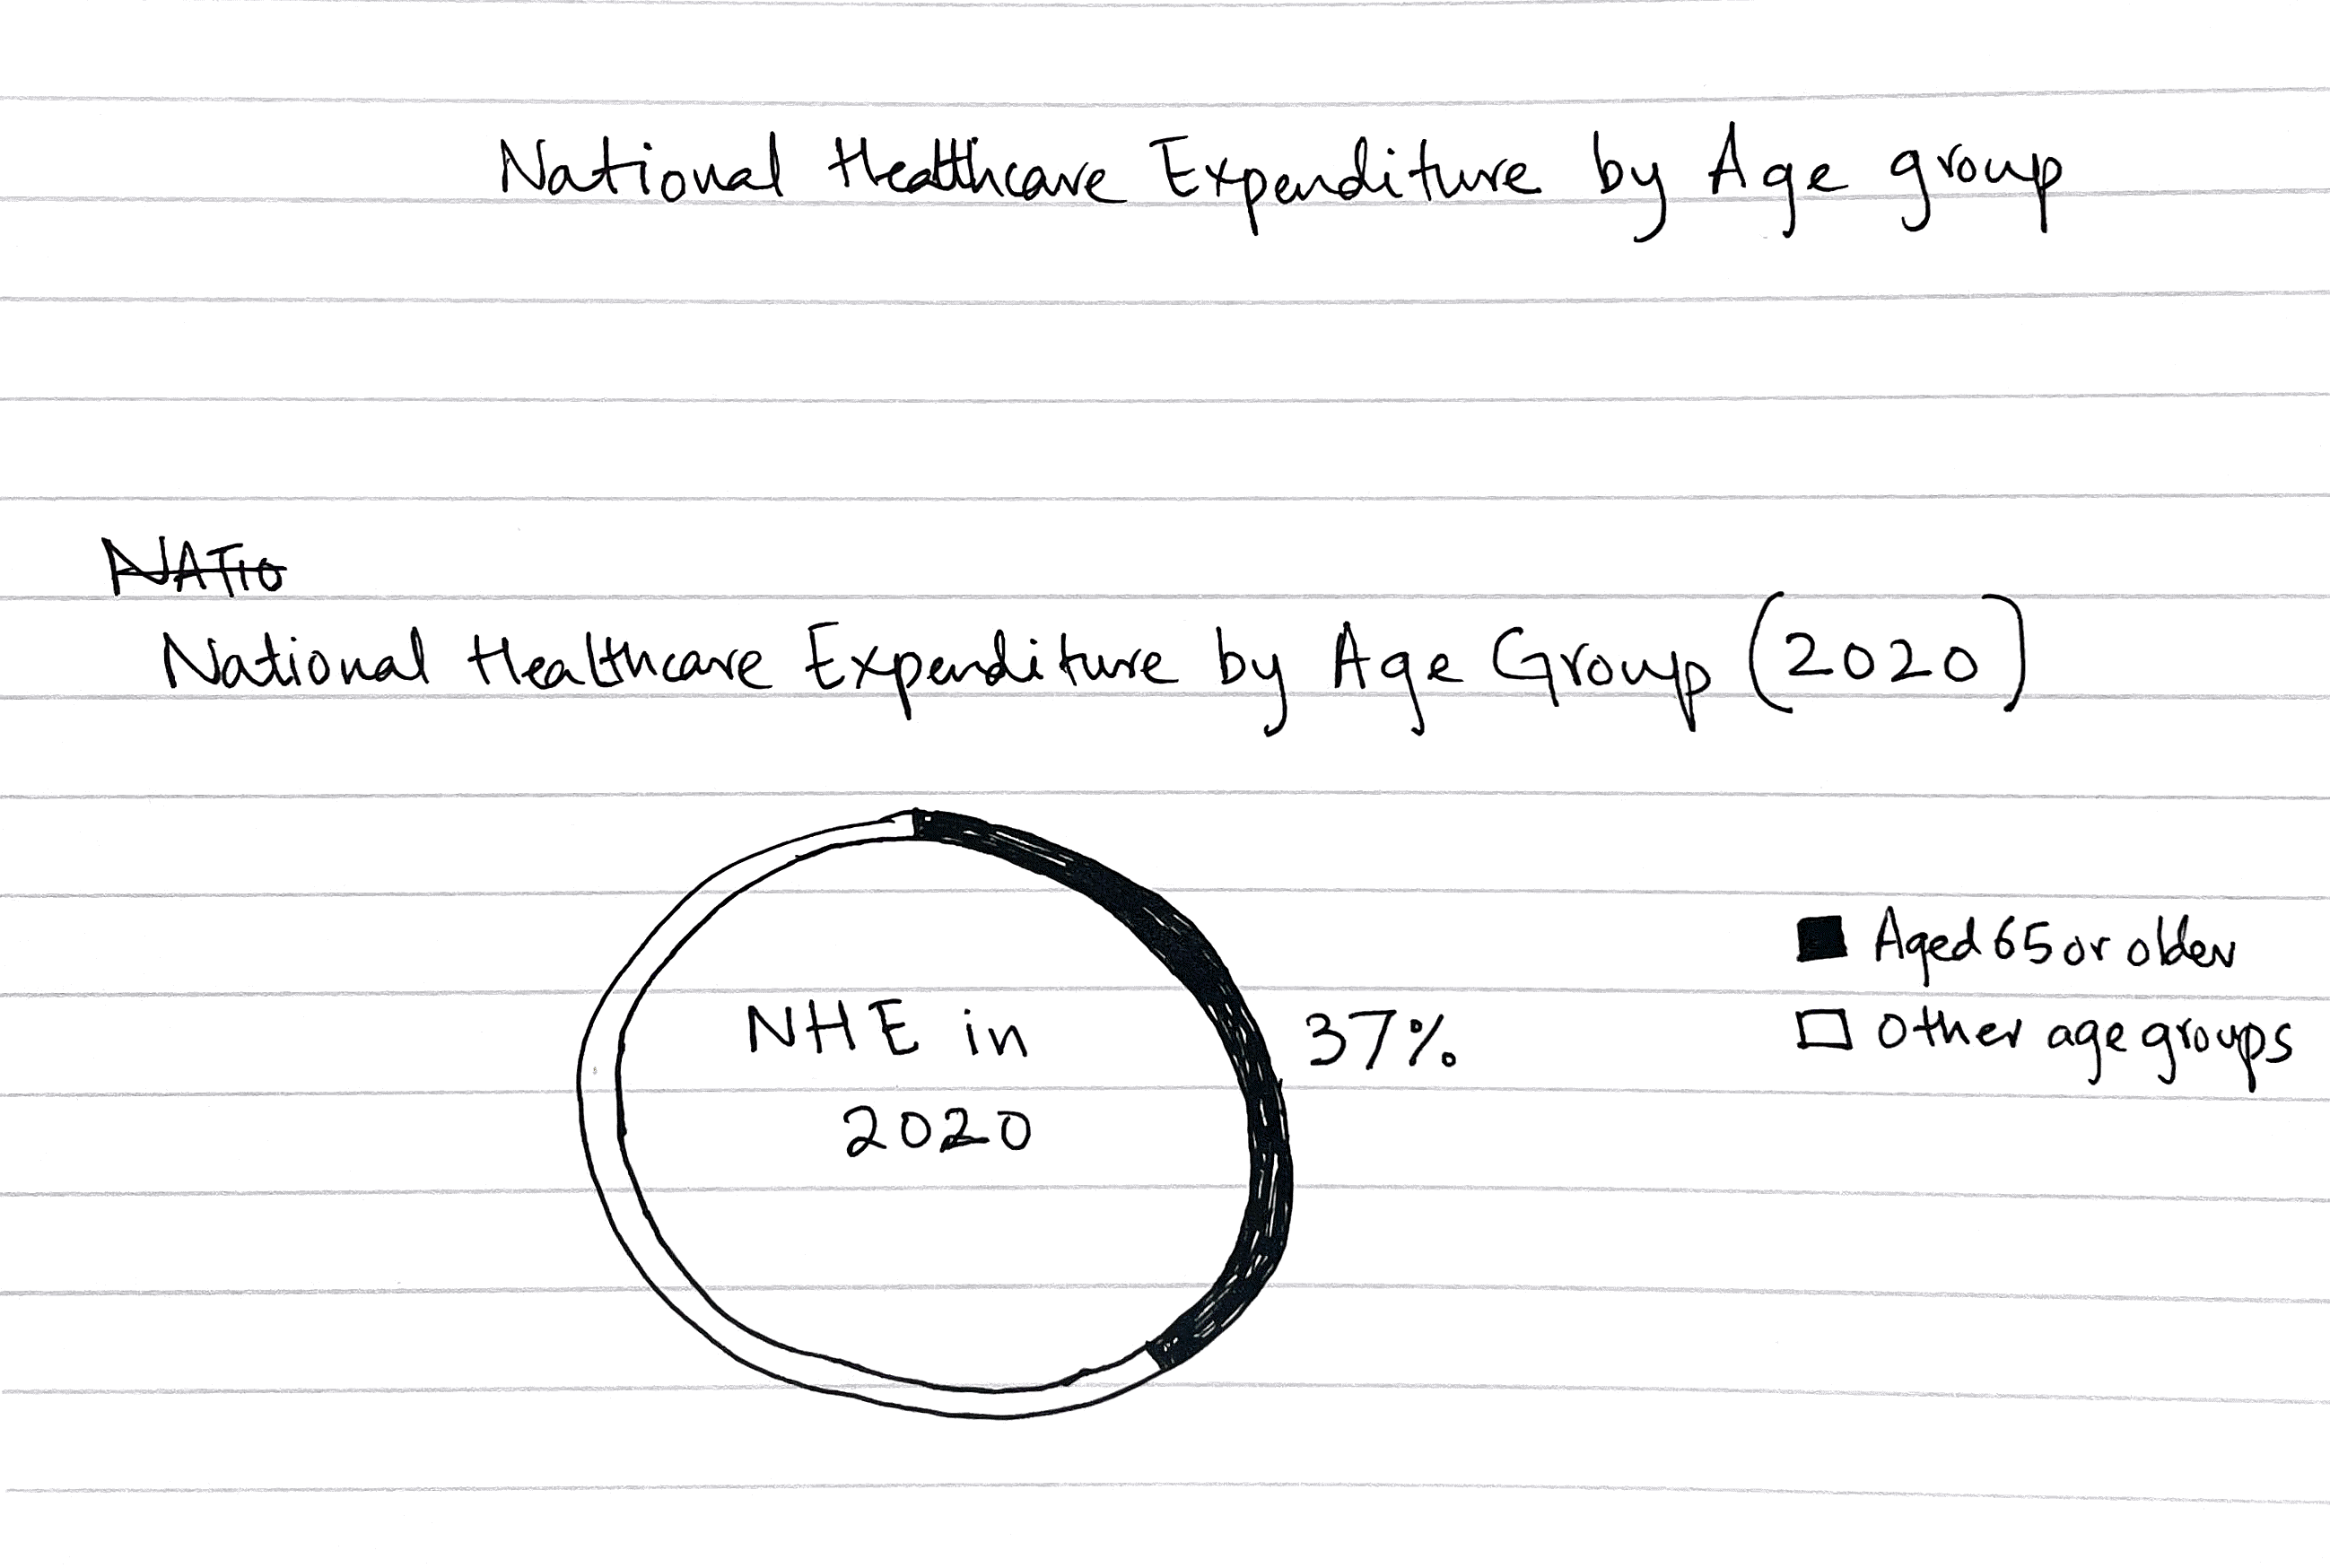 National Healthcare Expenditure by Age group
NATIO
National Healthcare Expenditure by Age Group (2020)
NHE in
2020
37%
Aged 65 or older
Other age groups